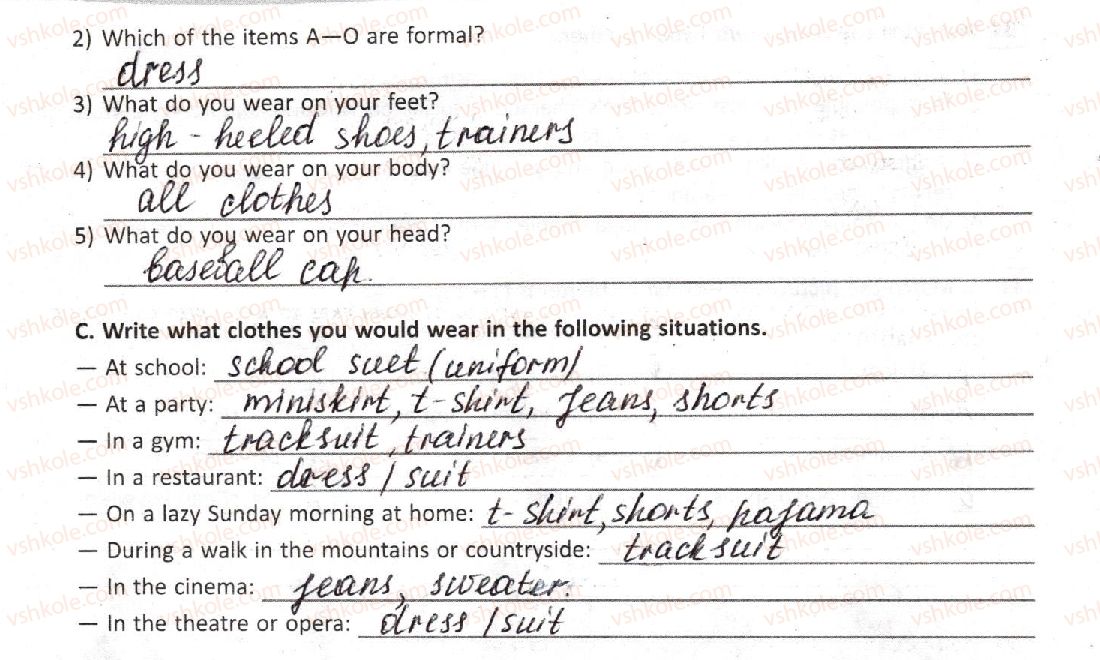 2) Which of the items A—O are formal?
dress
3) What do you wear on your feet?
high - heeled shoes, trainers
4) What do you wear on your body?
all clothes
5) What do you wear on your head?
baseball cap.
C. Write what clothes you would wear in the following situations.
— At school: school suet (uniform)
— At a party: miniskirt, t-shirt, jeans, shorts
— In a gym: tracksuit, trainers
— In a restaurant: dress / suit
— On a lazy Sunday morning at home: t-shirt, shorts, pajama
— During a walk in the mountains or countryside: tracksuit
— In the cinema: jeans, sweater.
— In the theatre or opera: dress / suit
vshkole.com